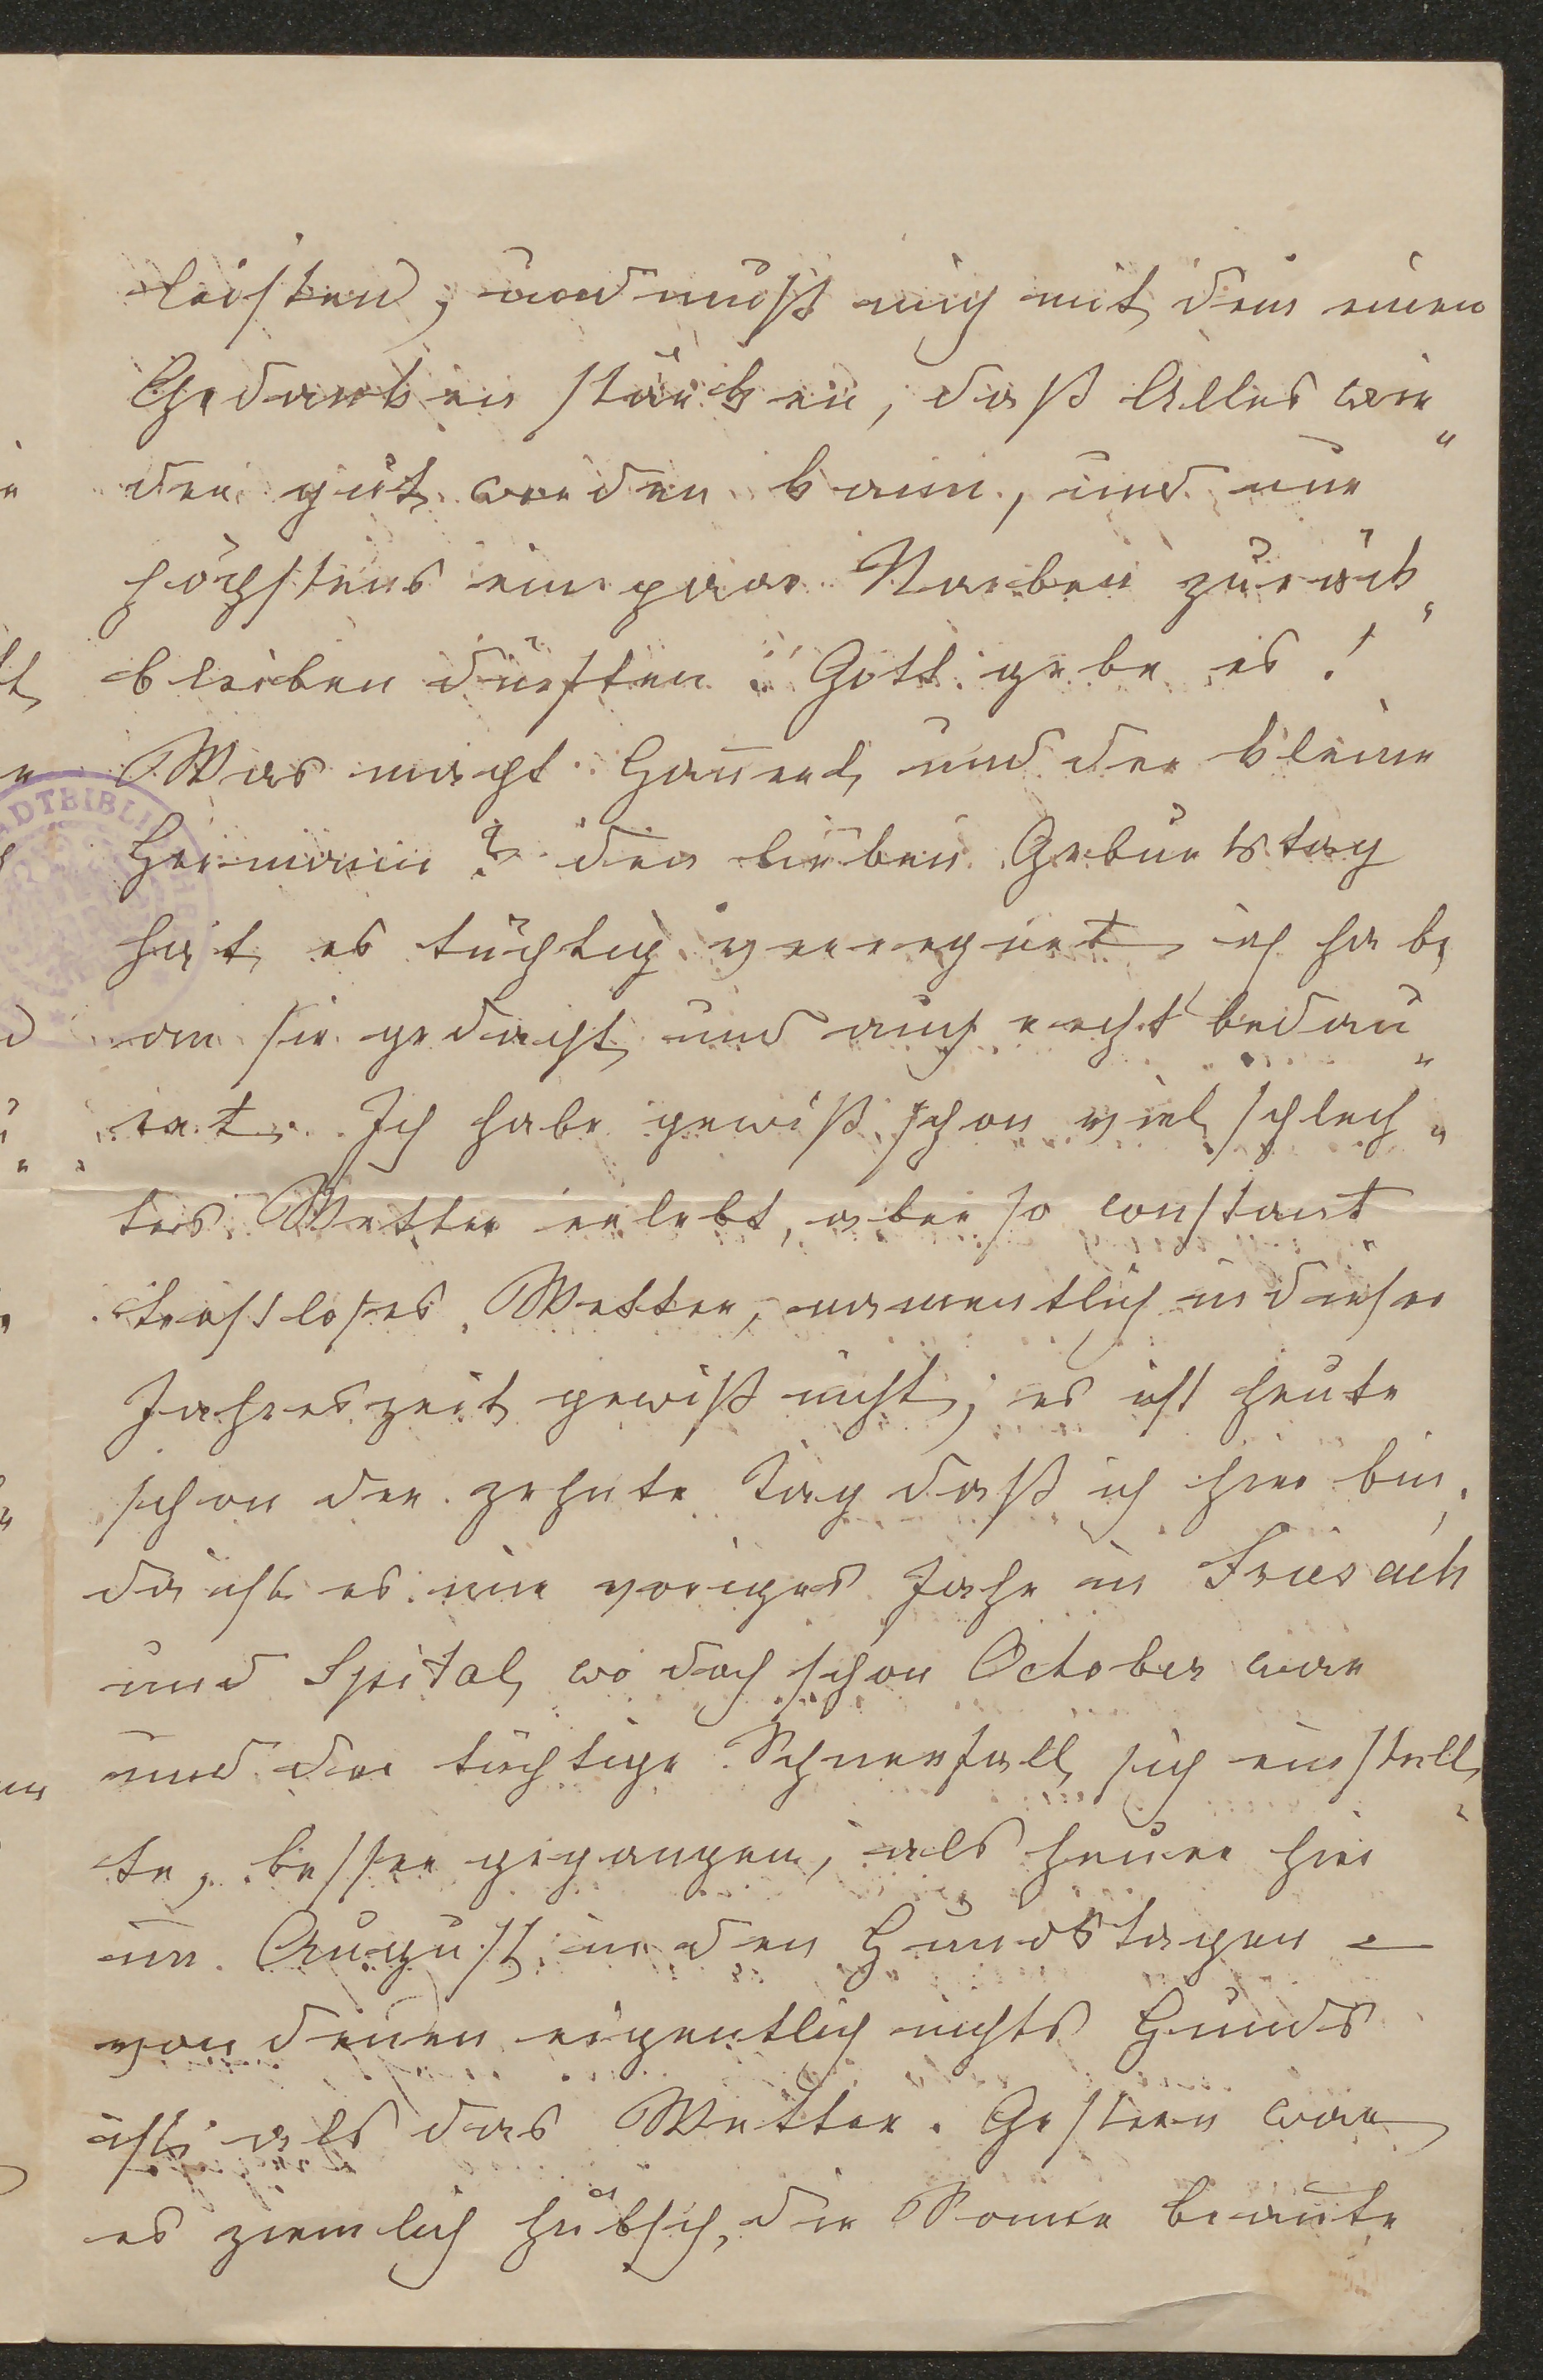 leisten, und muß mich mit dem einen
Gedanken stärken, daß Alles wie„
der gut werden kann, und nur
höchstens ein paar Narben zurück„
bleiben dürften! Gott gebe es!
Was macht Hannerl, und der kleine
Hermann? den lieben Geburtstag
hat es tüchtig verregnet, ich habe
an sie gedacht, und auch recht bedau„
ert. Ich habe gewiß schon viel schlech„
tes Wetter erlebt, aber so constant
trostloses Wetter, namentlich in dieser
Jahreszeit gewiß nicht; es ist heute
schon der zehnte Tag daß ich hier bin,
da ist es mir voriges Jahr in Friesach
und Spital, wo doch schon October war
und der tüchtige Schneefall sich einstell„
te, besser gegangen, als heuer hier
im August in den Hundstagen –
von denen eigentlich nichts Hunds
ist, als das Wetter. Gestern war
es ziemlich hübsch, die Sonne brannte